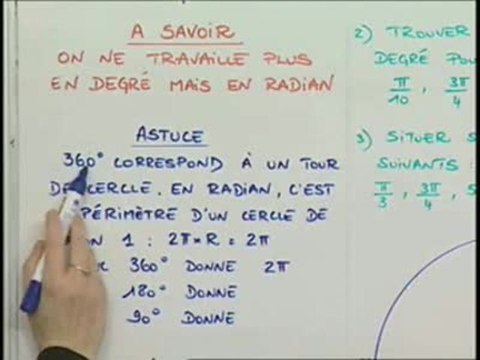 A SAVOIR
ON NE TRAVAILLE PLUS
EN DEGRÉ MAIS EN RADIAN
ASTUCE
360° CORRESPOND À UN TOUR
DE CERCLE. EN RADIAN, C'EST
PÉRIMÈTRE D'UN CERCLE DE
1 : 2π×R = 2π
360° DONNE 2π
180° DONNE
90° DONNE
2) TROUVER
DEGRÉ
π/10 , 3π/4
3) SITUER
SUIVANTS :
π/3 , 3π/4 ,